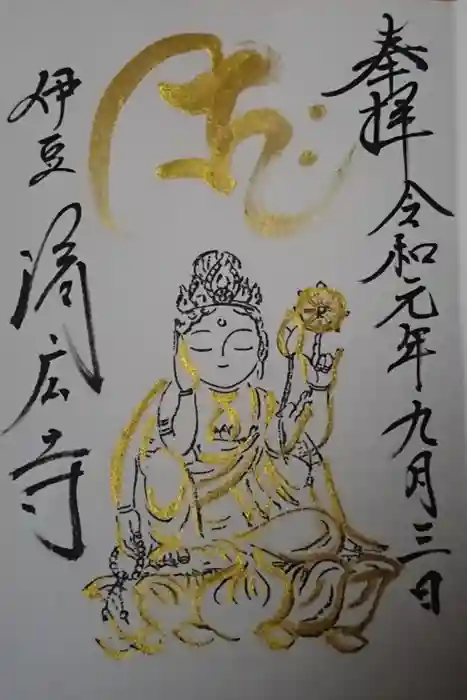 奉拝 令和元年九月三日
伊豆 済広寺